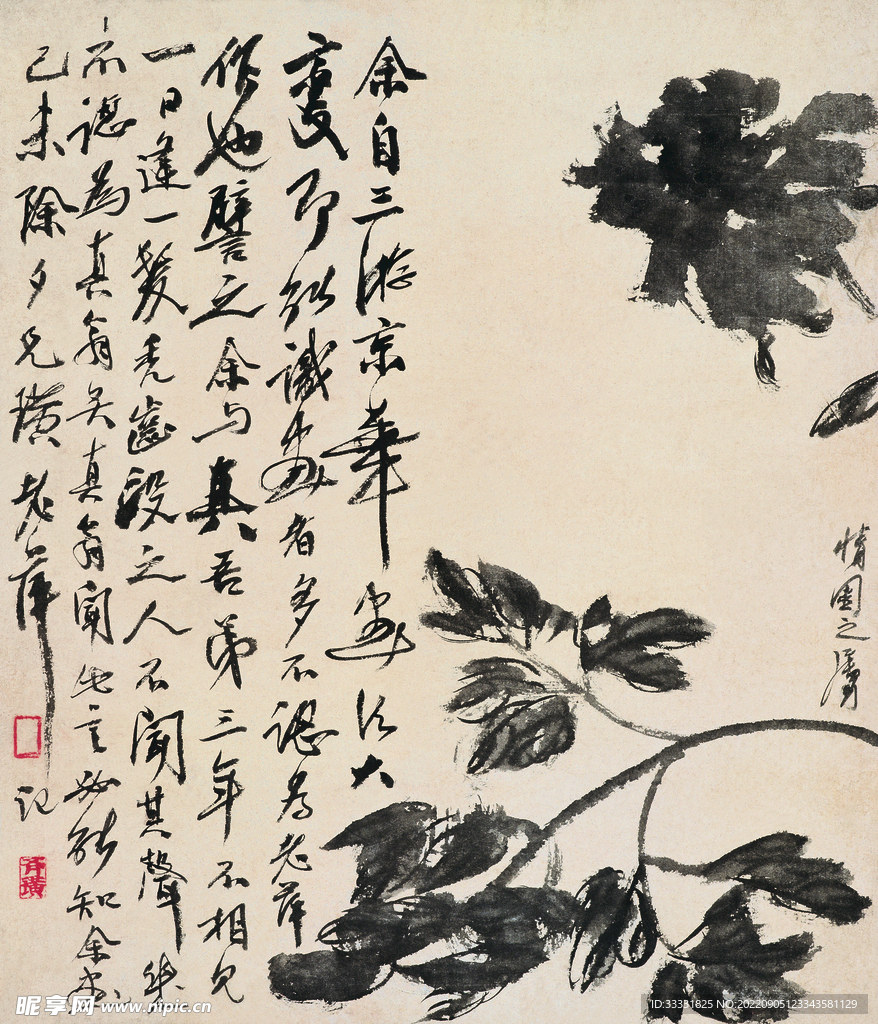 余自三游京華畫法大
變即能識畫者多不認為老萍
作也譬之余与真吾弟三年不相見
一日逢一髮禿齒沒之人不聞其聲幾
不認為真翁矣真翁聞此言必能知余畫
己未除夕兄璜老萍
記
齊璜
園之
昵享网 www.nipic.cn
ID:33381825 NO:20220905123343581129